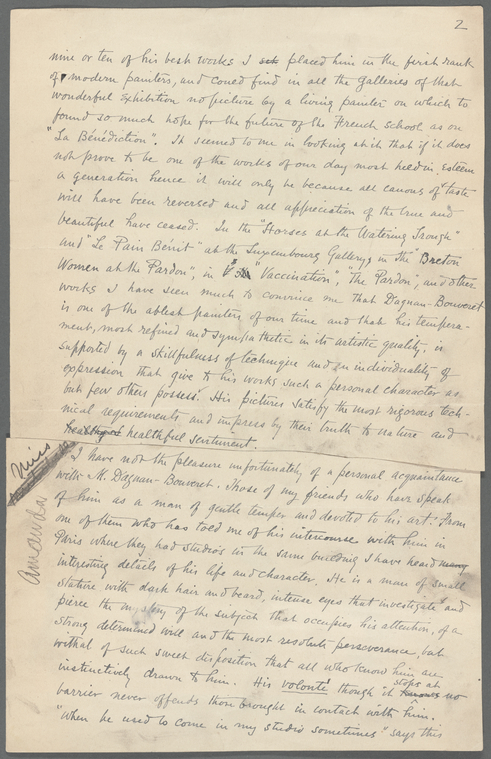 2
nine or ten of his best works I placed him in the first rank
of modern painters, and could find in all the galleries of that
wonderful exhibition no picture by a living painter on which to
found so much hope for the future of the French school as on
"La Bénédiction". It seemed to me in looking at it that if it does
not prove to be one of the works of our day most held in esteem
a generation hence it will only be because all canons of taste
will have been reversed and all appreciation of the true and
beautiful have ceased. In the "Horses at the Watering Trough"
and "Le Pain Bénit" at the Luxembourg Gallery, in the "Breton
Women at the Pardon", in "Vaccination", "The Pardon", and other
works I have seen much to convince me that Dagnan-Bouveret
is one of the ablest painters of our time and that his tempera-
ment, most refined and sympathetic in its artistic quality, is
supported by a skillfulness of technique and an individuality of
expression that give to his works such a personal character as
but few others possess. His pictures satisfy the most rigorous tech-
nical requirements and impress by their truth to nature and
healthful sentiment.
I have not the pleasure unfortunately, of a personal acquaintance
with M. Dagnan-Bouveret. Those of my friends who have speak
of him as a man of gentle temper and devoted to his art. From
one of them who has told me of his intercourse with him in
Paris where they had studios in the same building I have heard many
interesting details of his life and character. He is a man of small
stature with dark hair and beard, intense eyes that investigate and
pierce the story of the subject that occupies his attention, of a
strong determined will and the most resolute perseverance, but
withal of such sweet disposition that all who know him are
instinctively drawn to him. His volonté though it stops at no
barrier never offends those brought in contact with him.
"When he used to come in my studio sometimes" says this
Miss
Amanda